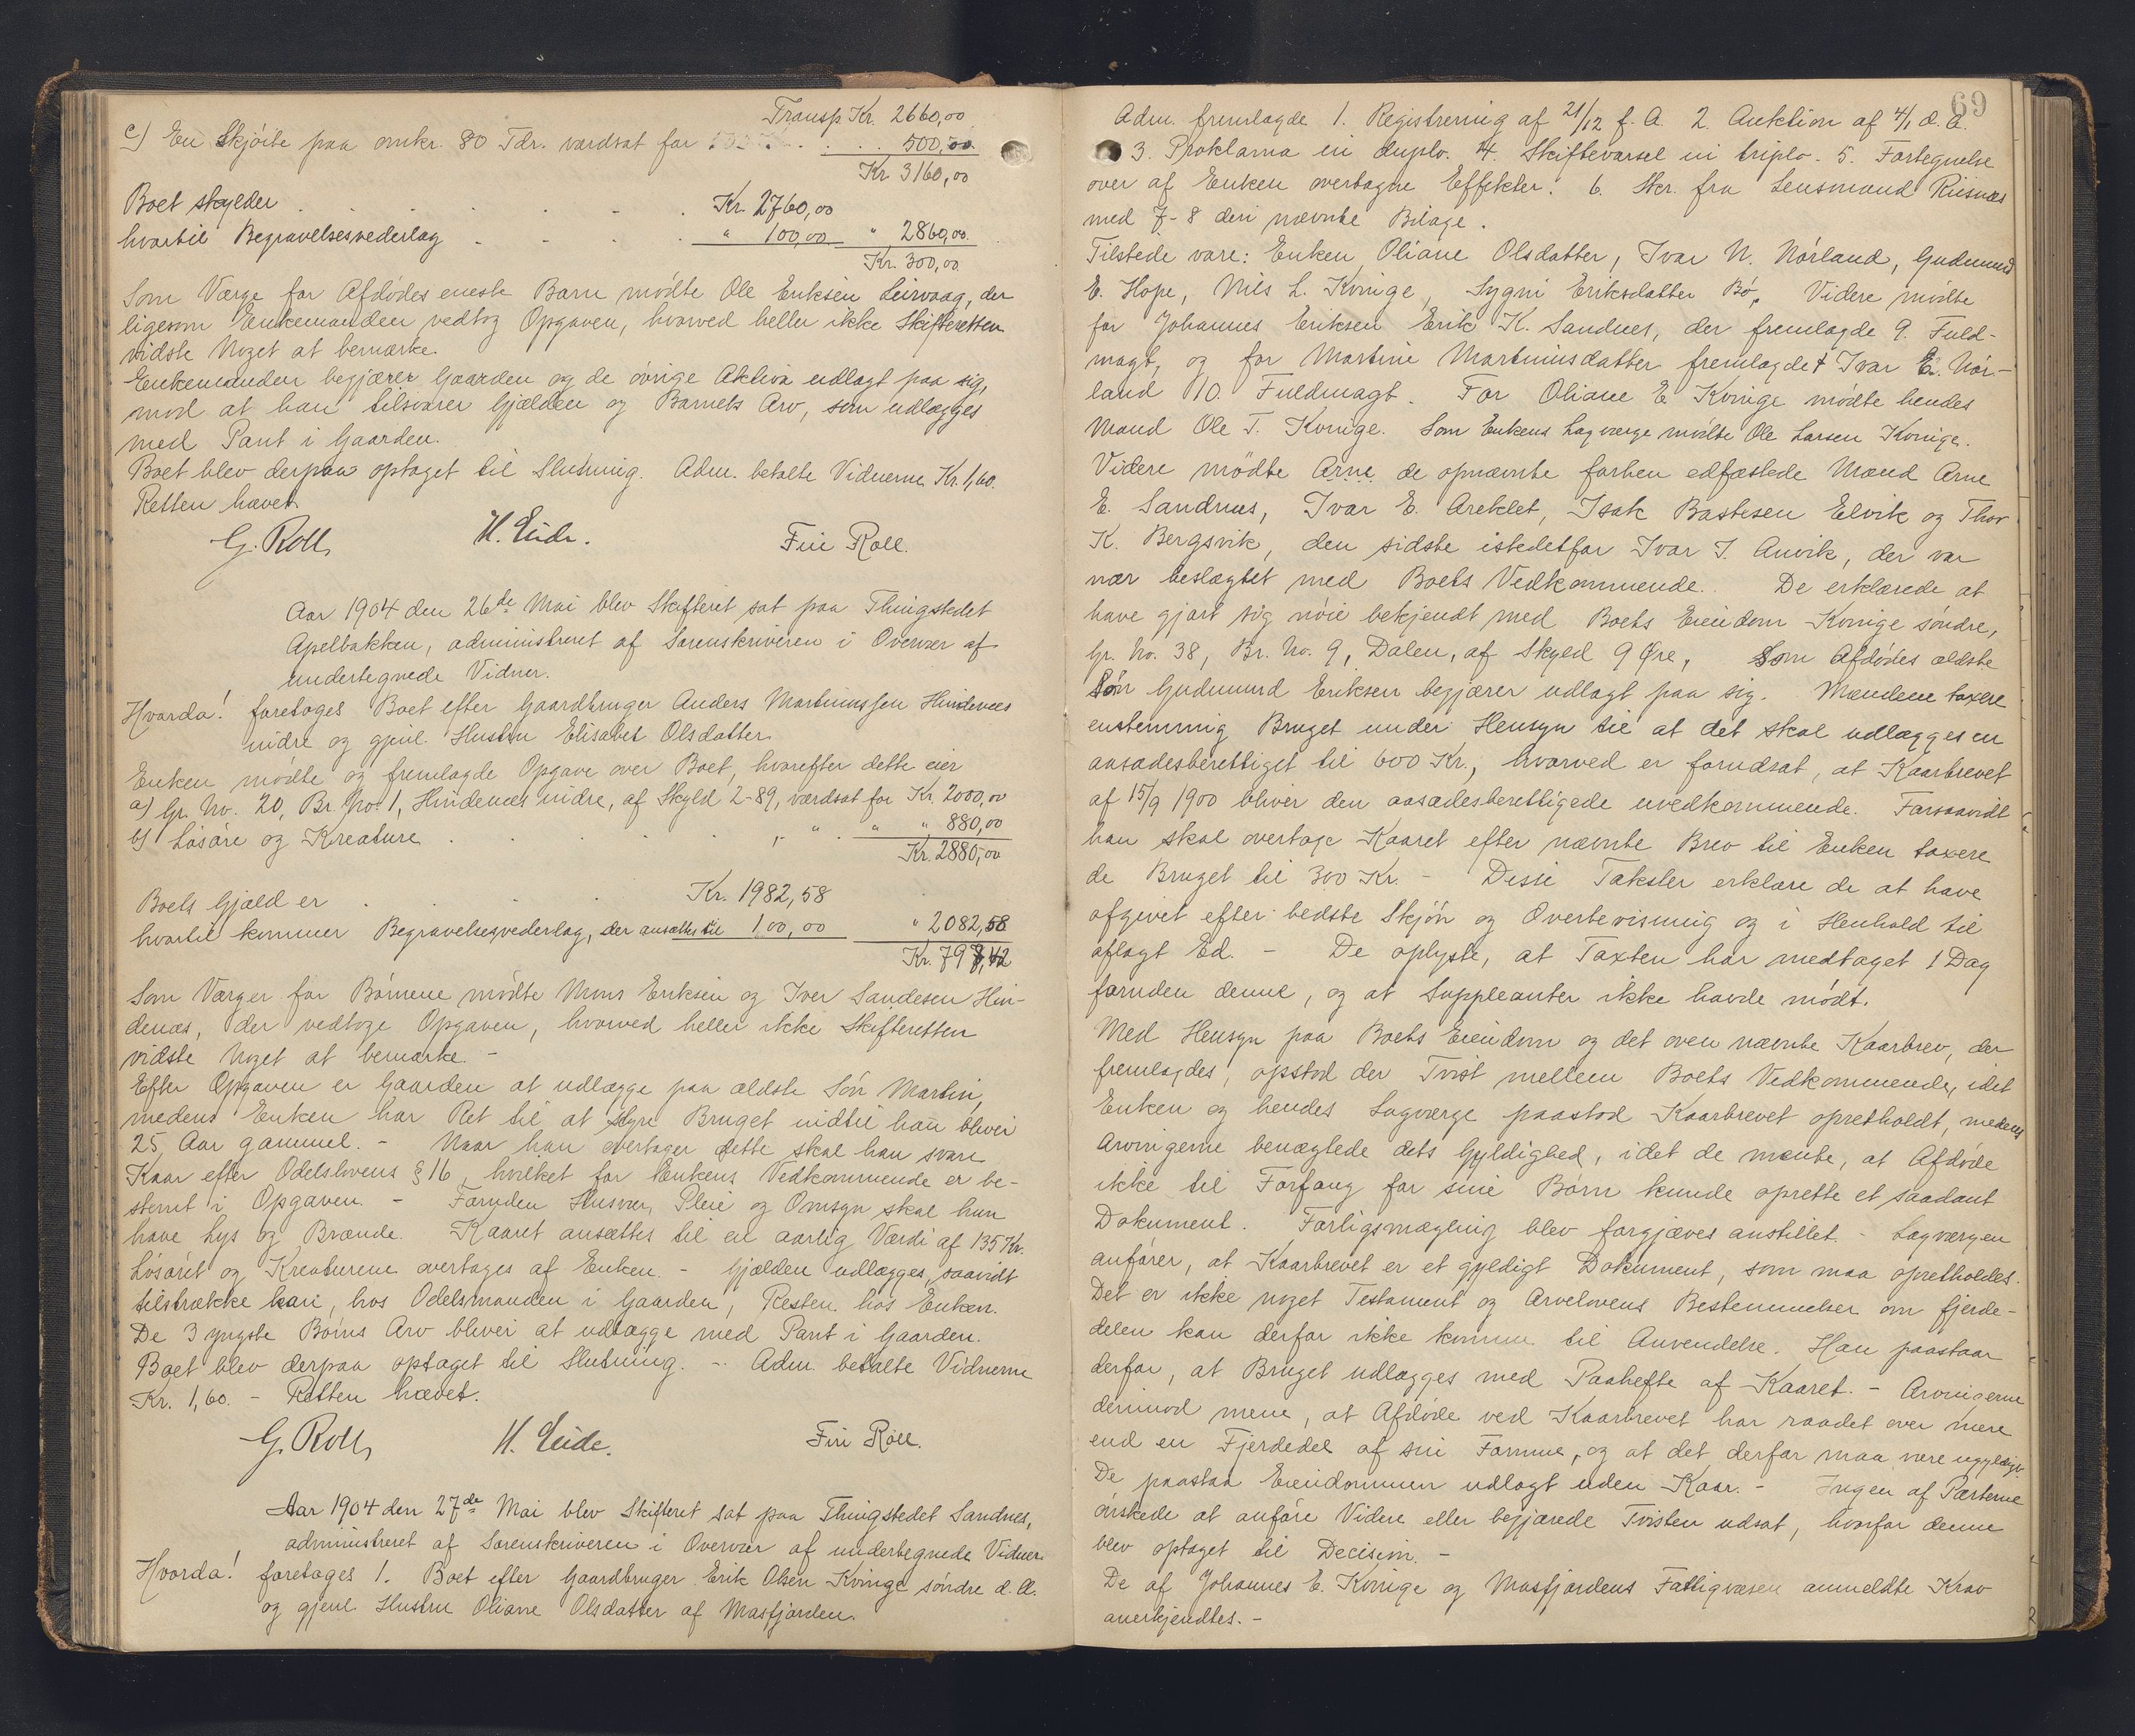 Transp. Kr. 2660,00
c) En Skjöite paa omkr. 80 Tdr. værdsat for . . . . 500,00
Kr 3160,00
Boet skylder . . . . . . Kr. 2760,00
hvortil Begravelsesvederlag - - - . " 100,00 " 2860,00.
Kr. 300,00.
Som Værge for Afdødes eneste Barn mödte Ole Eriksen Leirvaag, der
ligesom Enkemanden vedtog Opgaven, hvorved heller ikke Skifteretten
vidste Noget at bemærke.
Enkemanden begjærer Gaarden og de övrige Aktiva udlagt paa sig,
mod at han tilsvarer Gjælden og Barnets Arv, som udlægges
med Pant i Gaarden.
Boet blev derpaa optaget til Slutning. Adm. betalte Vidnerne Kr. 1,60.
Retten hævet.
G. Roll, H. Eide. Fin Roll.
Aar 1904 den 26de Mai blev Skifteret sat paa Thingstedet
Apelbakken, administreret af Sorenskriveren i Overvær af
undertegnede Vidner.
Hvorda! foretoges Boet efter Gaardbruger Anders Martinussen Hindenes
nidre og gjenl. Hustru Elisabet Olsdatter.
Enken mödte og fremlagde Opgave over Boet, hvorefter dette eier
a) Gr. No. 20, Br. No. 1, Hindenes nidre, af Skyld 2-89, værdsat for Kr. 2000,00
b) Lösöre og Kreature . . . " " . " " 880,00
Kr. 2880,00
Boets Gjæld er . . . Kr. 1982,58
hvortil kommer Begravelsesvederlag, der ansættes til 100,00 " 2082,58
Kr. 797,42
Som Værger for Börnene mödte Mons Eriksen og Iver Sandesen Hin-
denes, der vedtoge Opgaven, hvorved heller ikke Skifteretten
vidste Noget at bemærke. -
Efter Opgaven er Gaarden at udlægge paa ældste Sön Martin,
medens Enken har Ret til at styre Bruget indtil han bliver
25 Aar gammel. - Naar han overtager dette skal han svare
Kaar efter Odelslovens § 16, hvilket for Enkens Vedkommende er be-
stemt i Opgaven. - Foruden Husvær, Pleie og Omsyn skal hun
have Lys og Brænde. Kaaret ansættes til en aarlig Værdi af 135 Kr.
Lösöret og Kreaturene overtages af Enken. - Gjælden udlægges, saavidt
tilstrække kan, hos Odelsmanden i Gaarden, Resten hos Enken.
De 3 yngste Börns Arv bliver at udlægge med Pant i Gaarden.
Boet blev derpaa optaget til Slutning. - Adm. betalte Vidnerne
Kr. 1,60. - Retten hævet.
G. Roll, H. Eide. Fin Roll.
Aar 1904 den 27de Mai blev Skifteret sat paa Thingstedet Sandnes,
administreret af Sorenskriveren i Overvær af undertegnede Vidner.
Hvorda! foretoges 1. Boet efter Gaardbruger Erik Olsen Kvinge söndre d. Æ.
og gjenl. Hustru Oliane Olsdatter af Masfjorden.
69
Adm. fremlagde 1. Registrering af 21/12 f. A. 2. Auktion af 4/1 d. A.
3. Proklama in duplo. 4. Skiftevarsel in triplo. 5. Fortegnelse
over af Enken overtagne Effekter. 6. Skr. fra Lensmand Riisnæs
med 7-8 deri nævnte Bilage.
Tilstede vare: Enken Oliane Olsdatter, Ivar N. Nörland, Gudmund
E. Hope, Nils L. Kvinge, Sygni Eriksdatter Bö. Videre mödte
for Johannes Eriksen Erik K. Sandnes, der fremlagde 9. Fuld-
magt, og for Martine Martinusdatter fremlagdet Ivar E. Nör-
land 10. Fuldmagt. For Oliane E. Kvinge mödte hendes
Mand Ole T. Kvinge. Som Enkens Lagværge mödte Ole Larsen Kvinge.
Videre mödte Arne de opnævnte forhen edfæstede Mænd Arne
E. Sandnes, Ivar E. Areklet, Isak Bastesen Elvik og Thor
K. Bergsvik, den sidste istedetfor Ivar I. Anvik, der var
nær beslægtet med Boets Vedkommende. De erklærede at
have gjort sig nöie bekjendt med Boets Eiendom Kvinge söndre,
Gr. No. 38, Br. No. 9, Dalen, af Skyld 9 Øre, Som Afdödes ældste
Sön Gudmund Eriksen begjærer udlagt paa sig. Mændene taxere
enstemmig Bruget under Hensyn til at det skal udlægges en
aasædesberettiget til 600 Kr., hvorved er forudsat, at Kaarbrevet
af 15/9 1900 bliver den aasædesberettigede uvedkommende. Forsaavidt
han skal overtage Kaaret efter nævnte Brev til Enken taxere
de Bruget til 300 Kr. - Disse Takster erklære de at have
afgivet efter bedste Skjön og Overbevisning og i Henhold til
aflagt Ed. - De oplyste, at Taxten har medtaget 1 Dag
foruden denne, og at Suppleanter ikke havde mödt.
Med Hensyn paa Boets Eiendom og det oven nævnte Kaarbrev, der
fremlagdes, opstod der Tvist mellem Boets Vedkommende, idet
Enken og hendes Lagværge paastod Kaarbrevet opretholdt, medens
Arvingerne benægtede dets Gyldighed, idet de mente, at Afdöde
ikke til Forfang for sine Börn kunde oprette et saadant
Dokument. Forligsmægling blev forgjæves anstillet. - Lagværgen
anförer, at Kaarbrevet er et gyldigt Dokument, som maa opretholdes.
Det er ikke noget Testament og Arvelovens Bestemmelser om fjerde-
delen kan derfor ikke komme til Anvendelse. Han paastaar
derfor, at Bruget udlægges med Paahefte af Kaaret. - Arvingerne
derimod mene, at Afdöde ved Kaarbrevet har raadet over mere
end en Fjerdedel af sin Formue, og at det derfor maa være ugyldigt.
De paastaa Eiendommen udlagt uden Kaar. - Ingen af Parterne
önskede at anföre Videre eller begjærede Tvisten udsat, hvorfor denne
blev optaget til Decision. -
De af Johannes E. Kvinge og Masfjordens Fattigvæsen anmeldte Krav
anerkjendtes. -